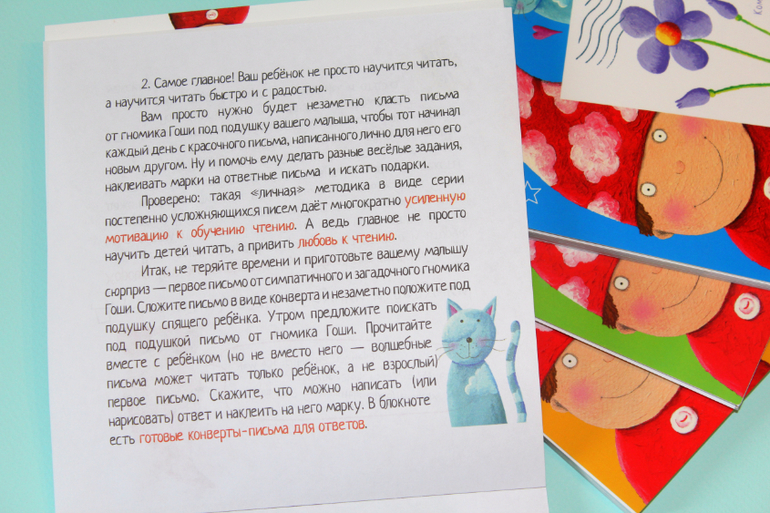 2. Самое главное! Ваш ребёнок не просто научится читать,
а научится читать быстро и с радостью.
Вам просто нужно будет незаметно класть письма
от гномика Гоши под подушку вашего малыша, чтобы тот начинал
каждый день с красочного письма, написанного лично для него его
новым другом. Ну и помочь ему делать разные весёлые задания,
наклеивать марки на ответные письма и искать подарки.
Проверено: такая «личная» методика в виде серии
постепенно усложняющихся писем даёт многократно усиленную
мотивацию к обучению чтению. А ведь главное не просто
научить детей читать, а привить любовь к чтению.
Итак, не теряйте времени и приготовьте вашему малышу
сюрприз — первое письмо от симпатичного и загадочного гномика
Гоши. Сложите письмо в виде конверта и незаметно положите под
подушку спящего ребёнка. Утром предложите поискать
под подушкой письмо от гномика Гоши. Прочитайте
вместе с ребёнком (но не вместо него — волшебные
письма может читать только ребёнок, а не взрослый)
первое письмо. Скажите, что можно написать (или
нарисовать) ответ и наклеить на него марку. В блокноте
есть готовые конверты-письма для ответов.